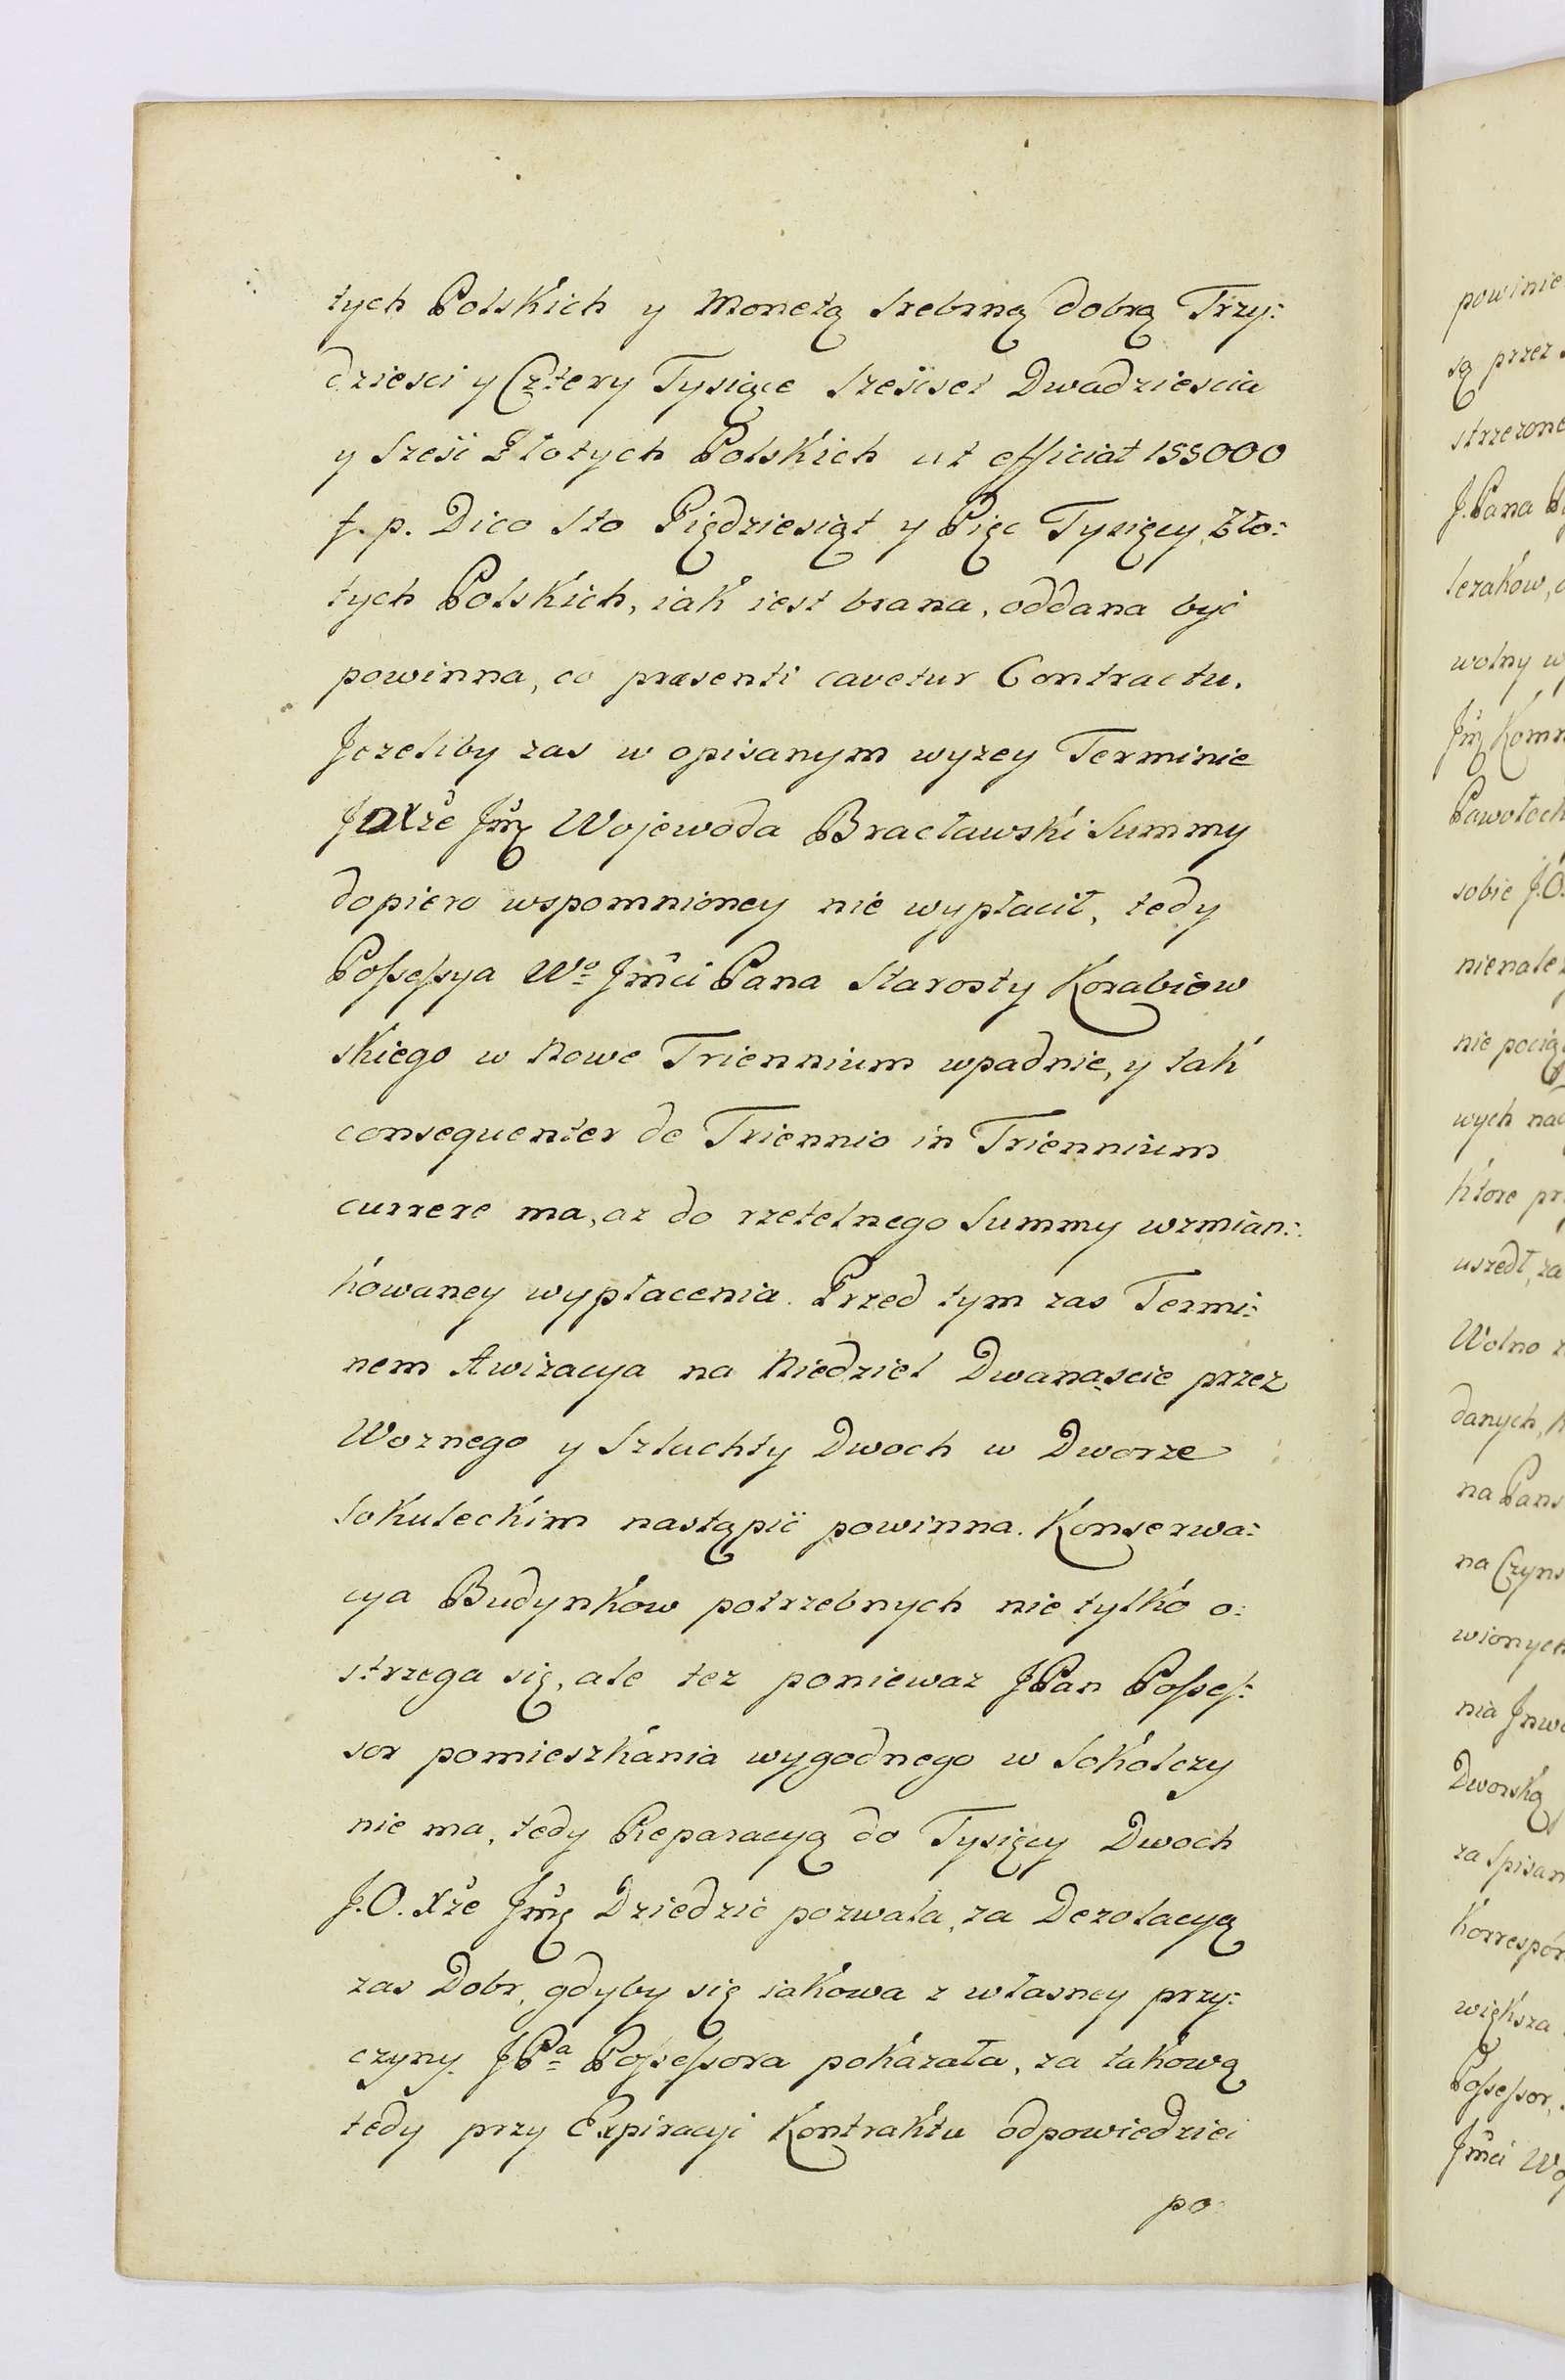 tych Polskich y Monetą srebrną dobrą Trzy:
dziesci y Cztery Tysiące szescset Dwadziescia
y szesc Złotych Polskich ut efficiat 155000
f. p. Dico sto Pięcdziesiąt y Pięc Tysięcy Zło:
tych Polskich, iak iest brana, oddana być
powinna, co præsenti cavetur Contractu.
Jezeliby zas w opisanym wyzey Terminie
JOXże Jmę Wojewoda Bracławski summy
dopiero wspomnioney nie wypłacił, tedy
Possessya Wo Jmci Pana Starosty Korabiow
skiego w Nowe Triennium wpadnie, y tak
consequenter de Triennio in Triennium
currere ma, az do rzetelnego summy wzmian:
kowaney wypłacenia. Przed tym zas Termi:
nem Awizacya na Niedziel Dwanascie przez
Woznego y Szlachty Dwoch w Dworze
Sokuleckim nastąpić powinna. Konserwa:
cya Budynkow potrzebnych nie tylko o:
strzega się, ale tez poniewaz JPan Posses:
sor pomieszkania wygodnego w Sokolczy
nie ma, tedy Reparacyą do Tysięcy Dwoch
J.O. Xże Jmę Dziedzic pozwala, za Dezolacyą
zas Dobr, gdyby się iakowa z własney przy:
czyny JPa Possessora pokazała, za takową
tedy przy Expiracyi Kontraktu odpowiedziec
po
powinie
są przez
strzezone
J.Pana
wolny
Jmę
sobie J.O.
nie pocią
wych
ktore
uszedł, za
Wolno
danych,
na
na Czyns
wionych
nia
Dworską
za spisan
Korrespon
większa
Possessor,
Jmci